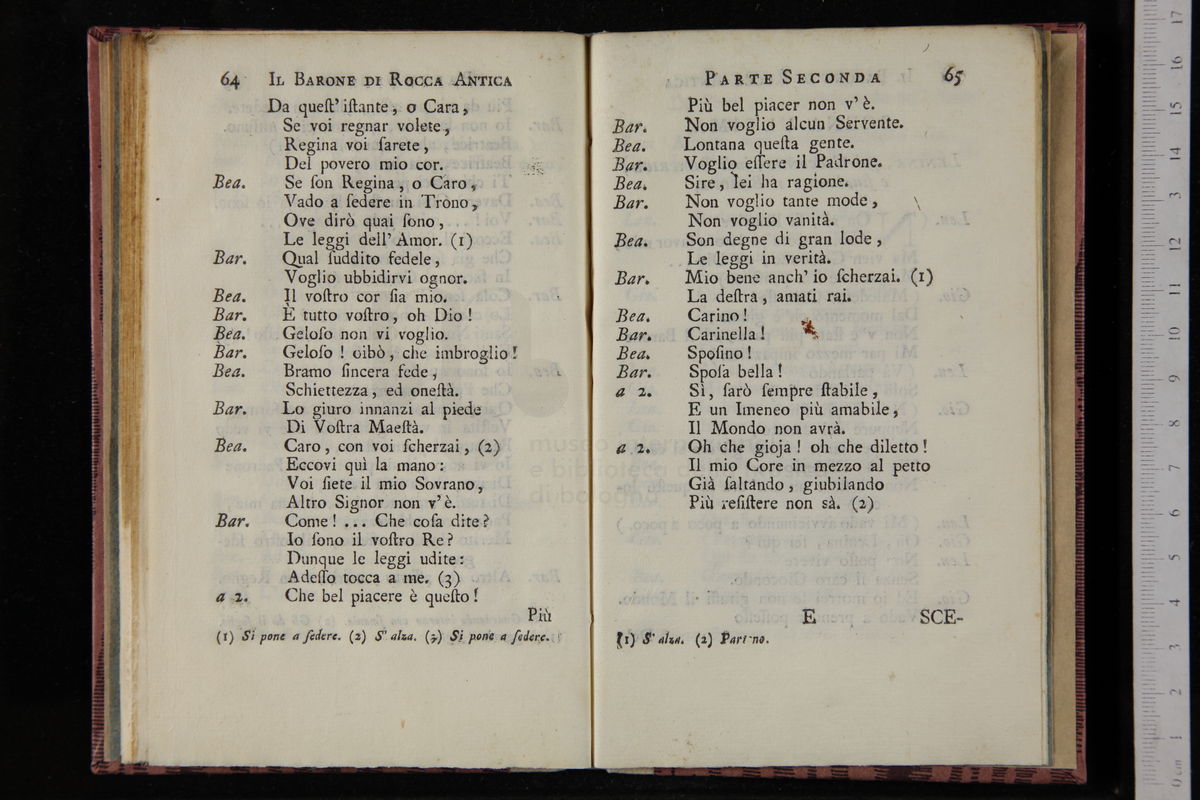 64 Il Barone di Rocca Antica
Da queſt' iſtante, o Cara,
Se voi regnar volete,
Regina voi ſarete,
Del povero mio cor.
Bea. Se ſon Regina, o Caro,
Vado a ſedere in Trono,
Ove dirò quai ſono,
Le leggi dell' Amor. (1)
Bar. Qual ſuddito fedele,
Voglio ubbidirvi ognor.
Bea. Il voſtro cor ſia mio.
Bar. È tutto voſtro, oh Dio!
Bea. Geloſo non vi voglio.
Bar. Geloſo! oibò, che imbroglio!
Bea. Bramo ſincera fede,
Schiettezza, ed oneſtà.
Bar. Lo giuro innanzi al piede
Di Voſtra Maeſtà.
Bea. Caro, con voi ſcherzai, (2)
Eccovi quì la mano:
Voi ſiete il mio Sovrano,
Altro Signor non v'è.
Bar. Come! ... Che coſa dite?
Io ſono il voſtro Re?
Dunque le leggi udite:
Adeſſo tocca a me. (3)
a 2. Che bel piacere è queſto!
Più
(1) Si pone a ſedere. (2) S' alza. (3) Si pone a ſedere.
Parte Seconda 65
Più bel piacer non v'è.
Bar. Non voglio alcun Servente.
Bea. Lontana queſta gente.
Bar. Voglio eſſere il Padrone.
Bea. Sire, lei ha ragione.
Bar. Non voglio tante mode,
Non voglio vanità.
Bea. Son degne di gran lode,
Le leggi in verità.
Bar. Mio bene anch' io ſcherzai. (1)
La deſtra, amati rai.
Bea. Carino!
Bar. Carinella!
Bea. Spoſino!
Bar. Spoſa bella!
a 2. Sì, ſarò ſempre ſtabile,
E un Imeneo più amabile,
Il Mondo non avrà.
a 2. Oh che gioja! oh che diletto!
Il mio Core in mezzo al petto
Già ſaltando, giubilando
Più reſiſtere non sà. (2)
E SCE-
(1) S' alza. (2) Partono.
museo
e biblioteca
di bologna